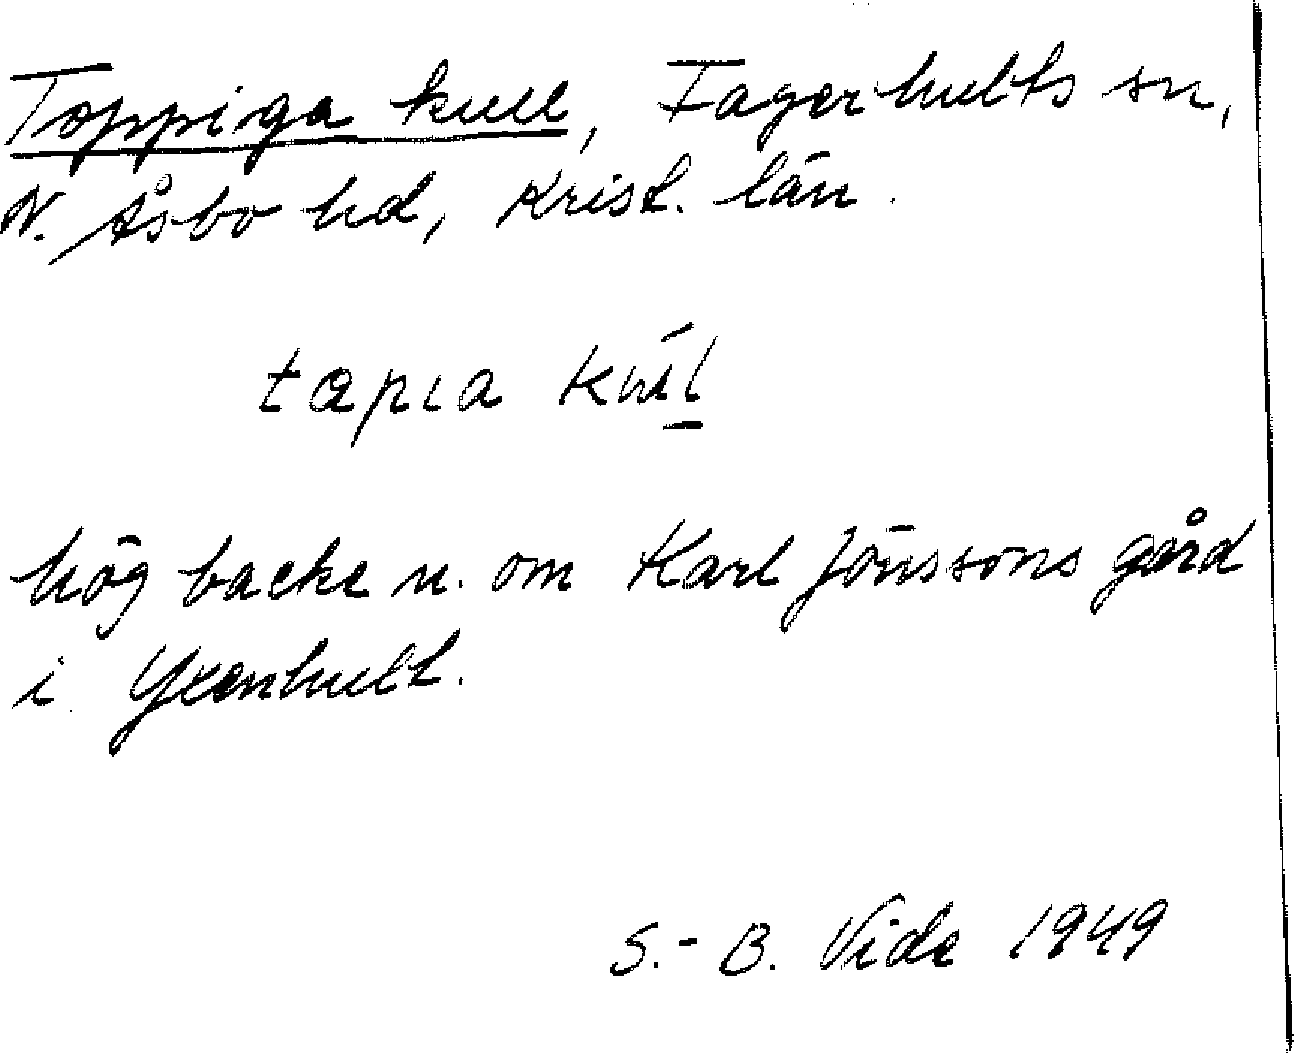 Toppiga kull, Fagerhults sn,
N. Åsbo hd, Krist. län.
tapıa
hög backe n. om Karl Jönssons gård
i Yxenhult.
S.-B. Vide 1949